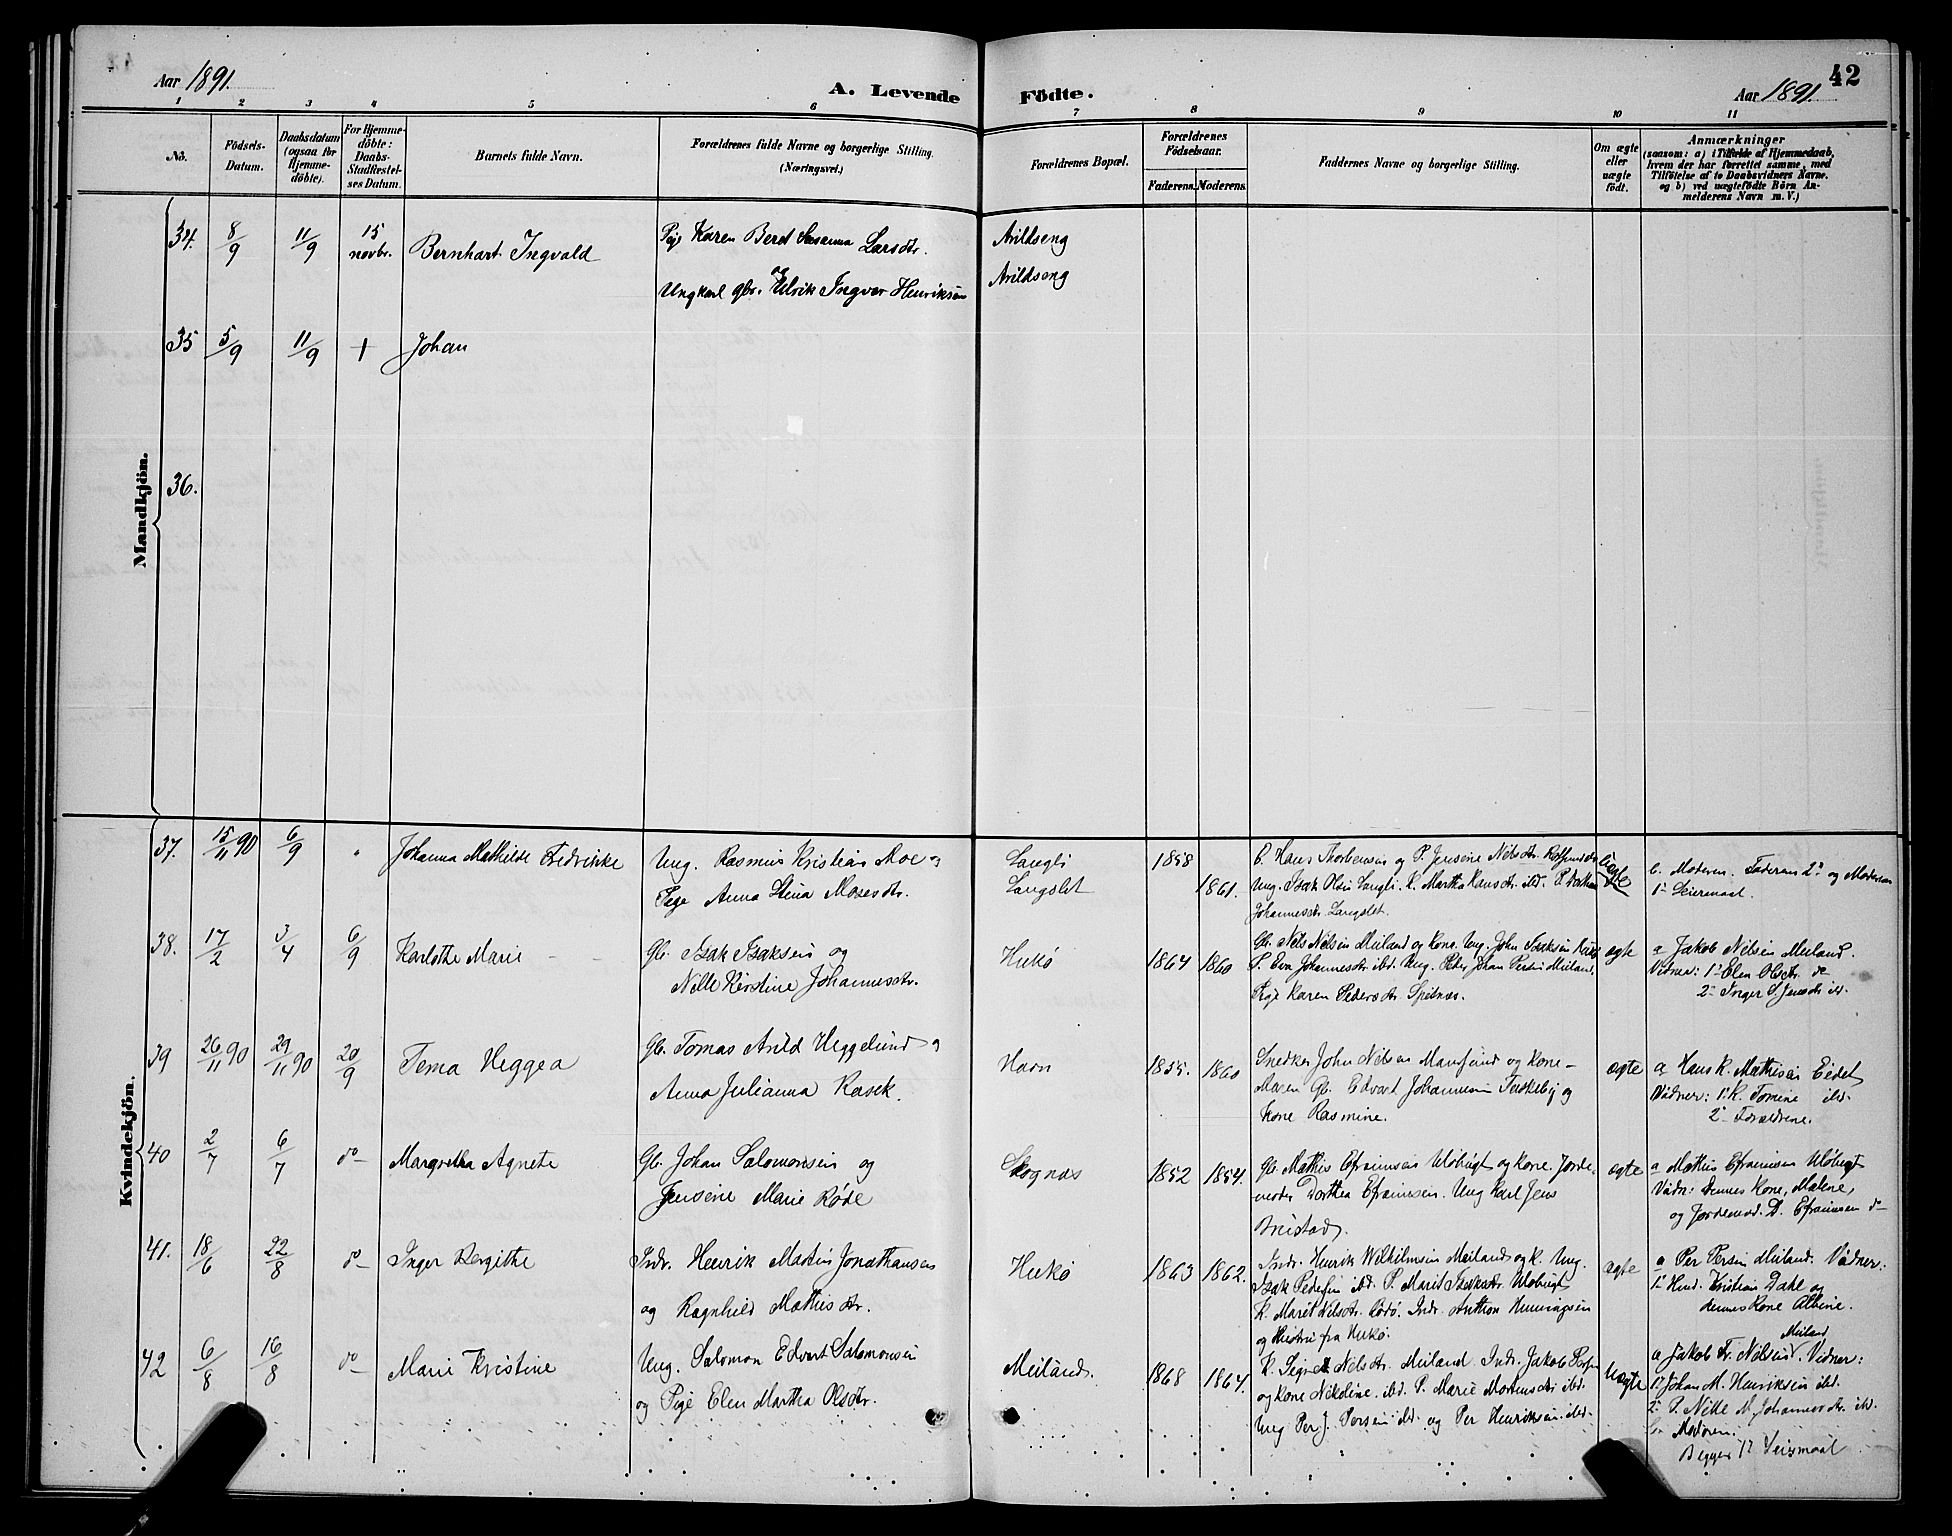 Aar 1891.
A. Levende Födte.
Aar 1891.
42
1 2 3 4 5 6 7 8 9 10 11
No.
Födsels-
Datum.
Daabsdatum
(ogsaa for
Hjemme-
döbte).
For Hjemme-
döbte:
Daabs-
Stadfestel-
ses Datum.
Barnets fulde Navn.
Forældrenes fulde Navne og borgerlige Stilling.
(Næringsvei.)
Forældrenes Bopæl.
Forældrenes
Födselsaar.
Faderens. Moderens.
Faddernes Navne og borgerlige Stilling.
Om ægte
eller
uægte
födt.
Anmærkninger
(saasom: a) i Tilfælde af Hjemmedaab,
hvem der har forrettet samme, med
Tilföielse af to Daabsvidners Navne.
og b) ved uægtefödte Börn An-
melderens Navn m. V.)
Mandkjön.
34. 8/9 11/9 15 novbr. Bernhart Ingvald
Pige Karen Beret Susanna Larsdtr. Arildseng
og
Ungkarl gbr. Ulrik Ingvar Henriksen Arildseng
35 5/9 11/9 + Johan
36.
Kvindekjön.
37. 15/11 90 6/9 " Johanna Mathilde Fredrikke
Ung. Rasmus Kristian Moe og
Pige Anna Stina Mosesdtr.
Langli
Langslet
1858
1861.
C. Hans Thorbensen og P. Jensine Nelsdtr.
Ung. Isak Olsen Langli. K. Martha Hansdtr. ibd.
Johannesdtr. Langslet.
uægte
b. Moderen. Faderens 2det og Moderens
1ste Leiermaal
38. 17/2 3/4 6/9 Karlotte Marie
Gb. Isak Isaksen og
Nille Kirstine Johannesdtr.
Hukö
1864 1860
Gb. Nels Nelsen Meiland og Kone. Ung. John Isaksen
P. Eva Johannesdtr ibd. Ung. Peder Johan Persen Meiland.
Pige Karen Pedersdtr Spilnæs.
ægte
a Jakob Nilsen Meiland.
Vidner: 1° Elen Olsdtr. do
2° Inger P. Jensdtr ibd.
39 26/11 90 29/11 90 20/9 Tema Heggea
Gb. Tomas Arild Heggelund og
Anna Julianna Rasck.
Havn
1855. 1860
Snedker John Nelsen Maursund og Kone
Maren Gb. Edvart Johannesen Taskeby og
Kone Rasmine.
ægte
a Hans K. Mathisen Eidet
Vidner: 1° K. Tomine ibd.
2° Forældrene.
40 2/7 6/7 do Margretha Agnete
Gb. Johan Salomonsen og
Jensine Marie Röde
Skognæs
1852 1854.
Gb. Mathis Efraimsen Ulöbugt og Kone. Jorde-
moder Dorthea Efraimsen. Ung Karl Jens
ægte
a Mathis Efraimsen Ulöbugt
Vidn: Dennes Kone, Malene,
og Jordemod. D. Efraimsen do
41. 18/6 22/8 do Inger Bergithe
Indr. Henrik Martin Jonathansen
og Ragnhild Mathisdtr.
Hukö
1863 1862.
Indr. Henrik Wilhelmsen Meiland og K. Ung.
Isak Pedersen ibd. P. Marit Isaksdtr. Ulöbugt
K. Marit Nilsdtr. Rödö. Indr. Anthon Henningsen
og Hustru fra Hukö.
ægte
a Per Persen Meiland. Vidner:
1° Hind. Kristian Dahl og
dennes Kone Albine.
42 6/8 16/8 do Marie Kristine
Ung. Salomon Edvart Salomonsen
og Pige Elen Martha Olsdtr.
Meiland.
1868 1864.
K. Sigrid Nelsdtr. Meiland Indr. Jakob Persen
og Kone Nikoline. ibd. P. Marie Mortensdtr ibd.
Ung Per J. Persen ibd. og Per Henriksen ibd.
Uægte
a Jakob Fr. Nilsen Meiland. Vidner:
1° Johan M. Henriksen ibd.
2° P. Nille M. Johannesdtr. ibd.
b. Moderen.
Begges 1ste Leiermaal